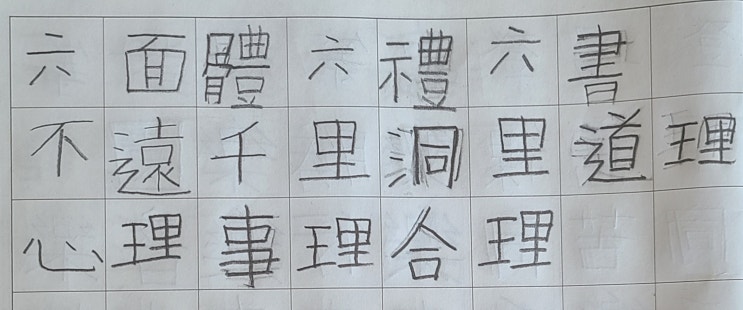 六面體六禮六書
不遠千里洞里道理
心理事理合理